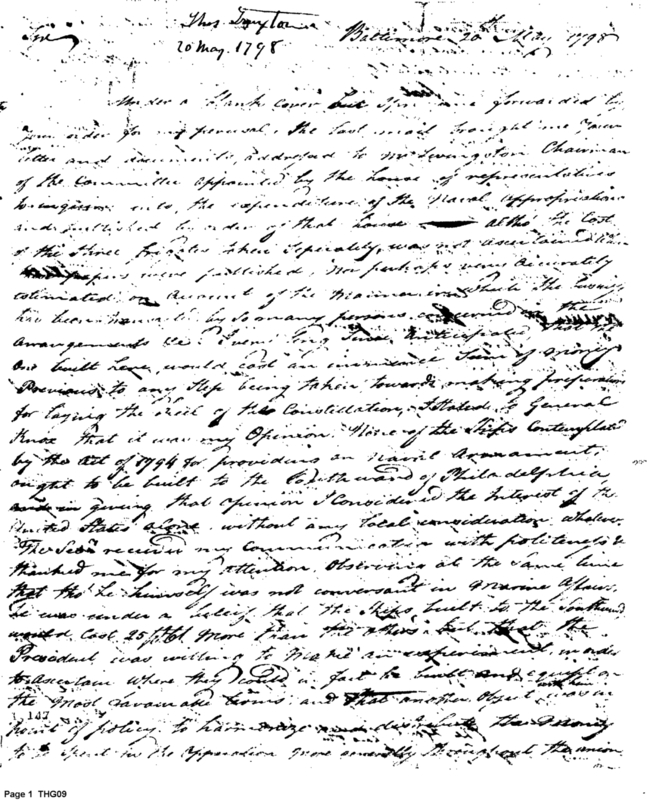 Thos Truxton
20 May 1798
Sir
Baltimore 20th May 1798
Under a blank cover but I am forwarded by
your order for my perusal. The last mail brought me your
letter and documents, addressed to Mr Livingston Chairman
of the Committee appointed by the house of representatives
to enquire into, the expenditure of the Naval appropriations
and published by order of that house altho the Cost
of the three frigates taken Seperately, was not ascertained
papers were published, nor perhaps very accurately
estimated, on account of the manner in which the business
has been by so many persons
arrangements &c I even long since anticipated
one built here would cost an immence Sum of money
Previous to any Step being taken towards making preparation
for laying the Keel of the Constellation, I stated to General
Knox that it was my Opinion, None of the Ships Contemplated
by the Act of 1794 for providing an Naval Armament,
ought to be built to the Southward of Philadelphia
and in giving that opinion I Considered the Interest of the
United States alone, without any local consideration whatever.
The Secy received my Communication with politeness &
thanked me for my attention. Observing at the same time
that tho' he himself was not conversant in Marine Affairs,
he was under a belief that the Ships built to the Southward
would Cost 25 more than the others; but that the
President was willing to make an experiment in order
to ascertain where they could in fact be built and equipt on
the most favourable terms and that another Object was in
point of policy to harmonize distribute the money
to be spent in the Operation more generally throughout the union
147
Page 1 THG09